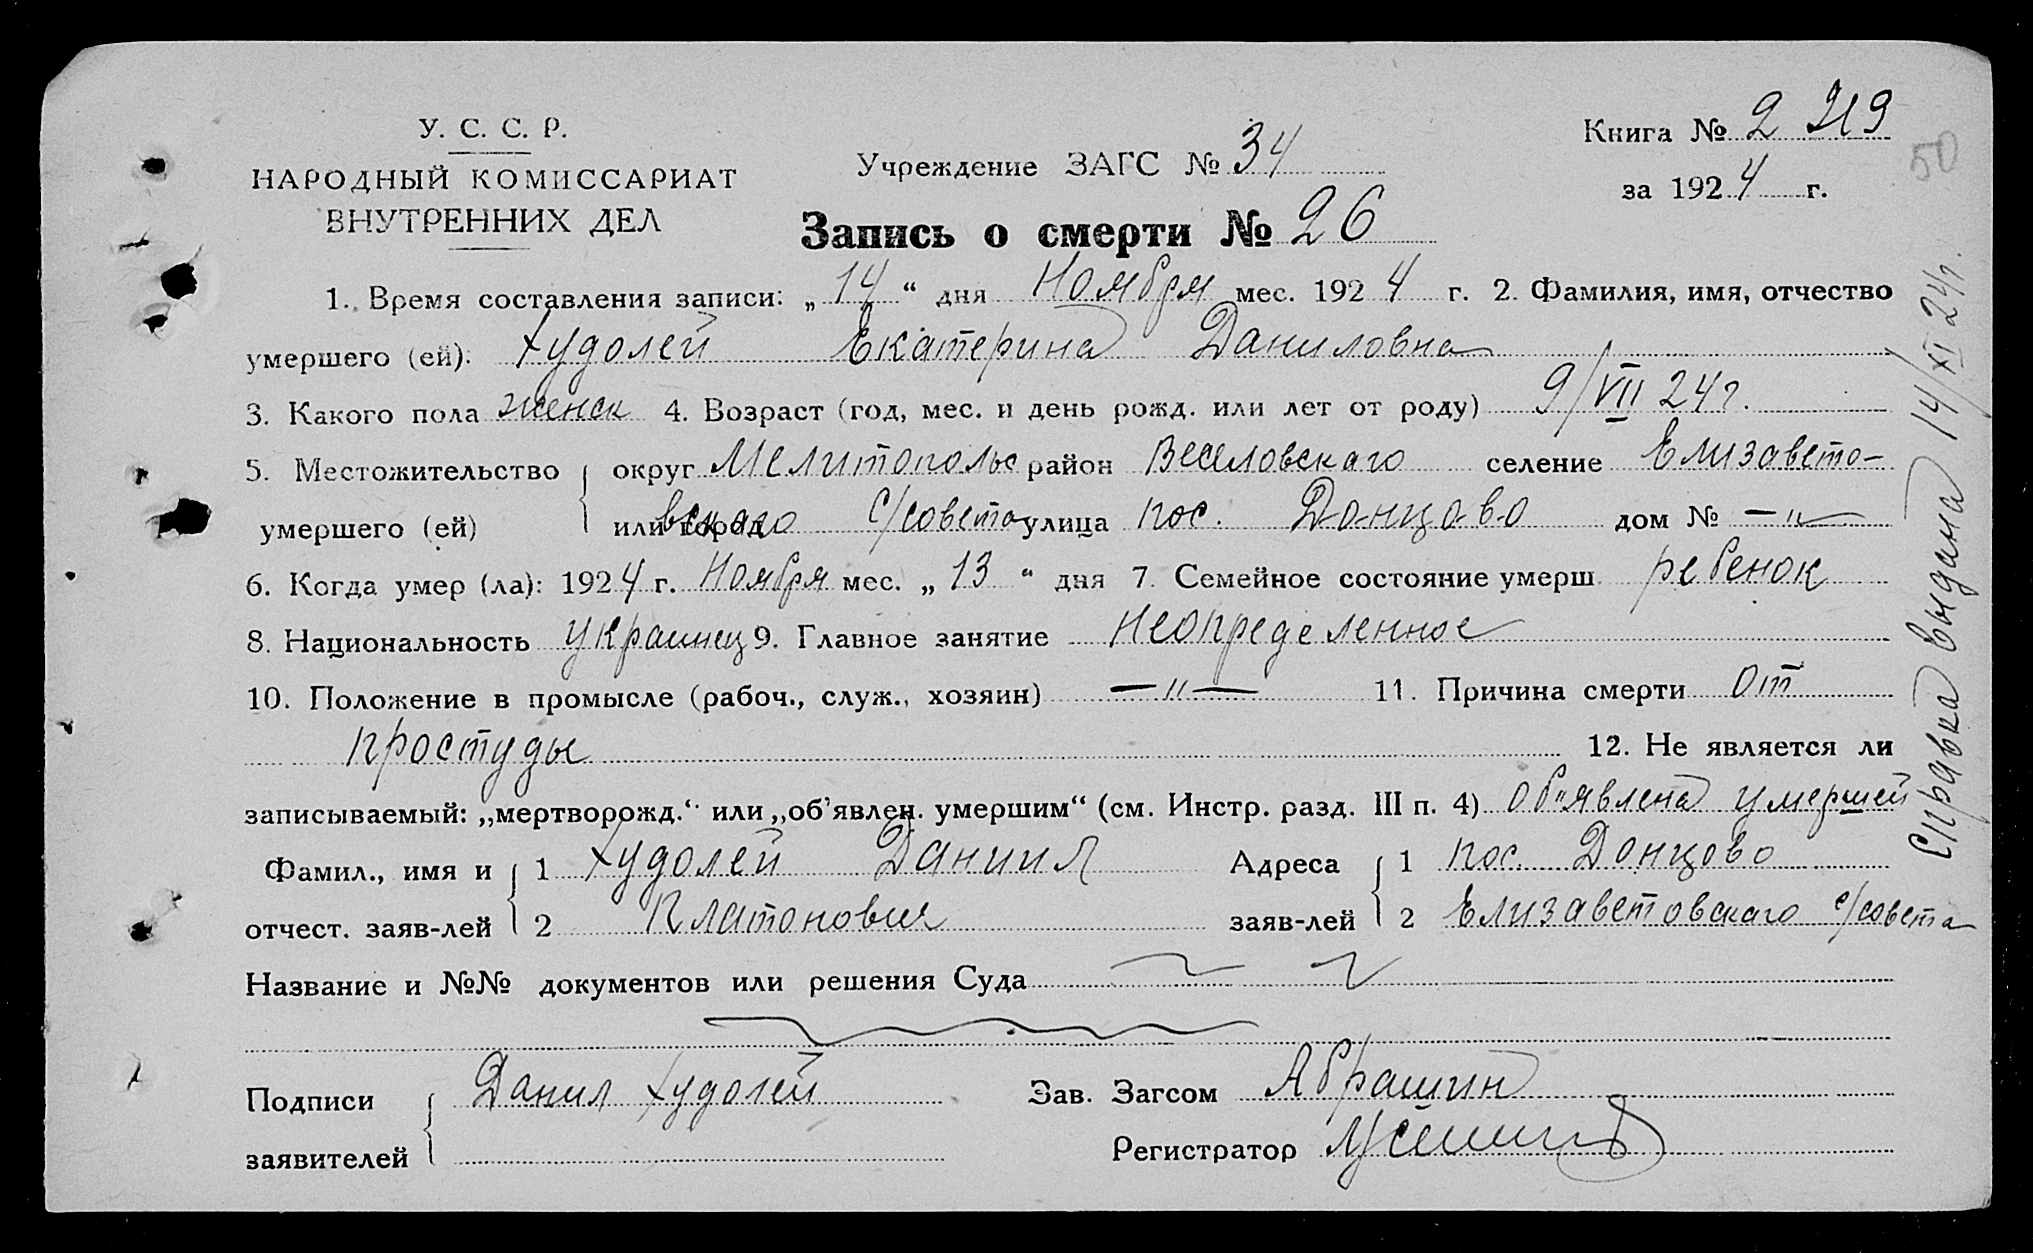 У. С. С. Р.
НАРОДНЫЙ КОМИССАРИАТ
ВНУТРЕННИХ ДЕЛ
Учреждение ЗАГС № 34
Книга № 2
за 1924 г.
50
Запись о смерти № 26
1. Время составления записи: „14“ дня Ноября мес. 1924 г. 2. Фамилия, имя, отчество
умершего (ей): Худолей Екатерина Даниловна
3. Какого пола женск 4. Возраст (год, мес. и день рожд. или лет от роду) 9/VII 24 г.
5. Местожительство округ Мелитопольс район Веселовского селение Елизавето-
умершего (ей) или город вского с/совета улица пос. Донцово дом № —"—
6. Когда умер (ла): 1924 г. Ноября мес. „13“ дня 7. Семейное состояние умерш. ребенок
8. Национальность украинец 9. Главное занятие Неопределенное
10. Положение в промысле (рабоч., служ., хозяин) —"— 11. Причина смерти от
простуды 12. Не является ли
записываемый: „мертворожд.“ или „об'явлен. умершим“ (см. Инстр. разд. III п. 4) Об"явлена умершей
Фамил., имя и 1 Худолей Даниил Адреса 1 пос. Донцово
отчест. заяв-лей 2 Платонович заяв-лей 2 Елизаветовского с/совета
Название и №№ документов или решения Суда
Подписи Данил Худолей Зав. Загсом Абрашин
заявителей Регистратор
Справка выдана 14/XI 24 г.